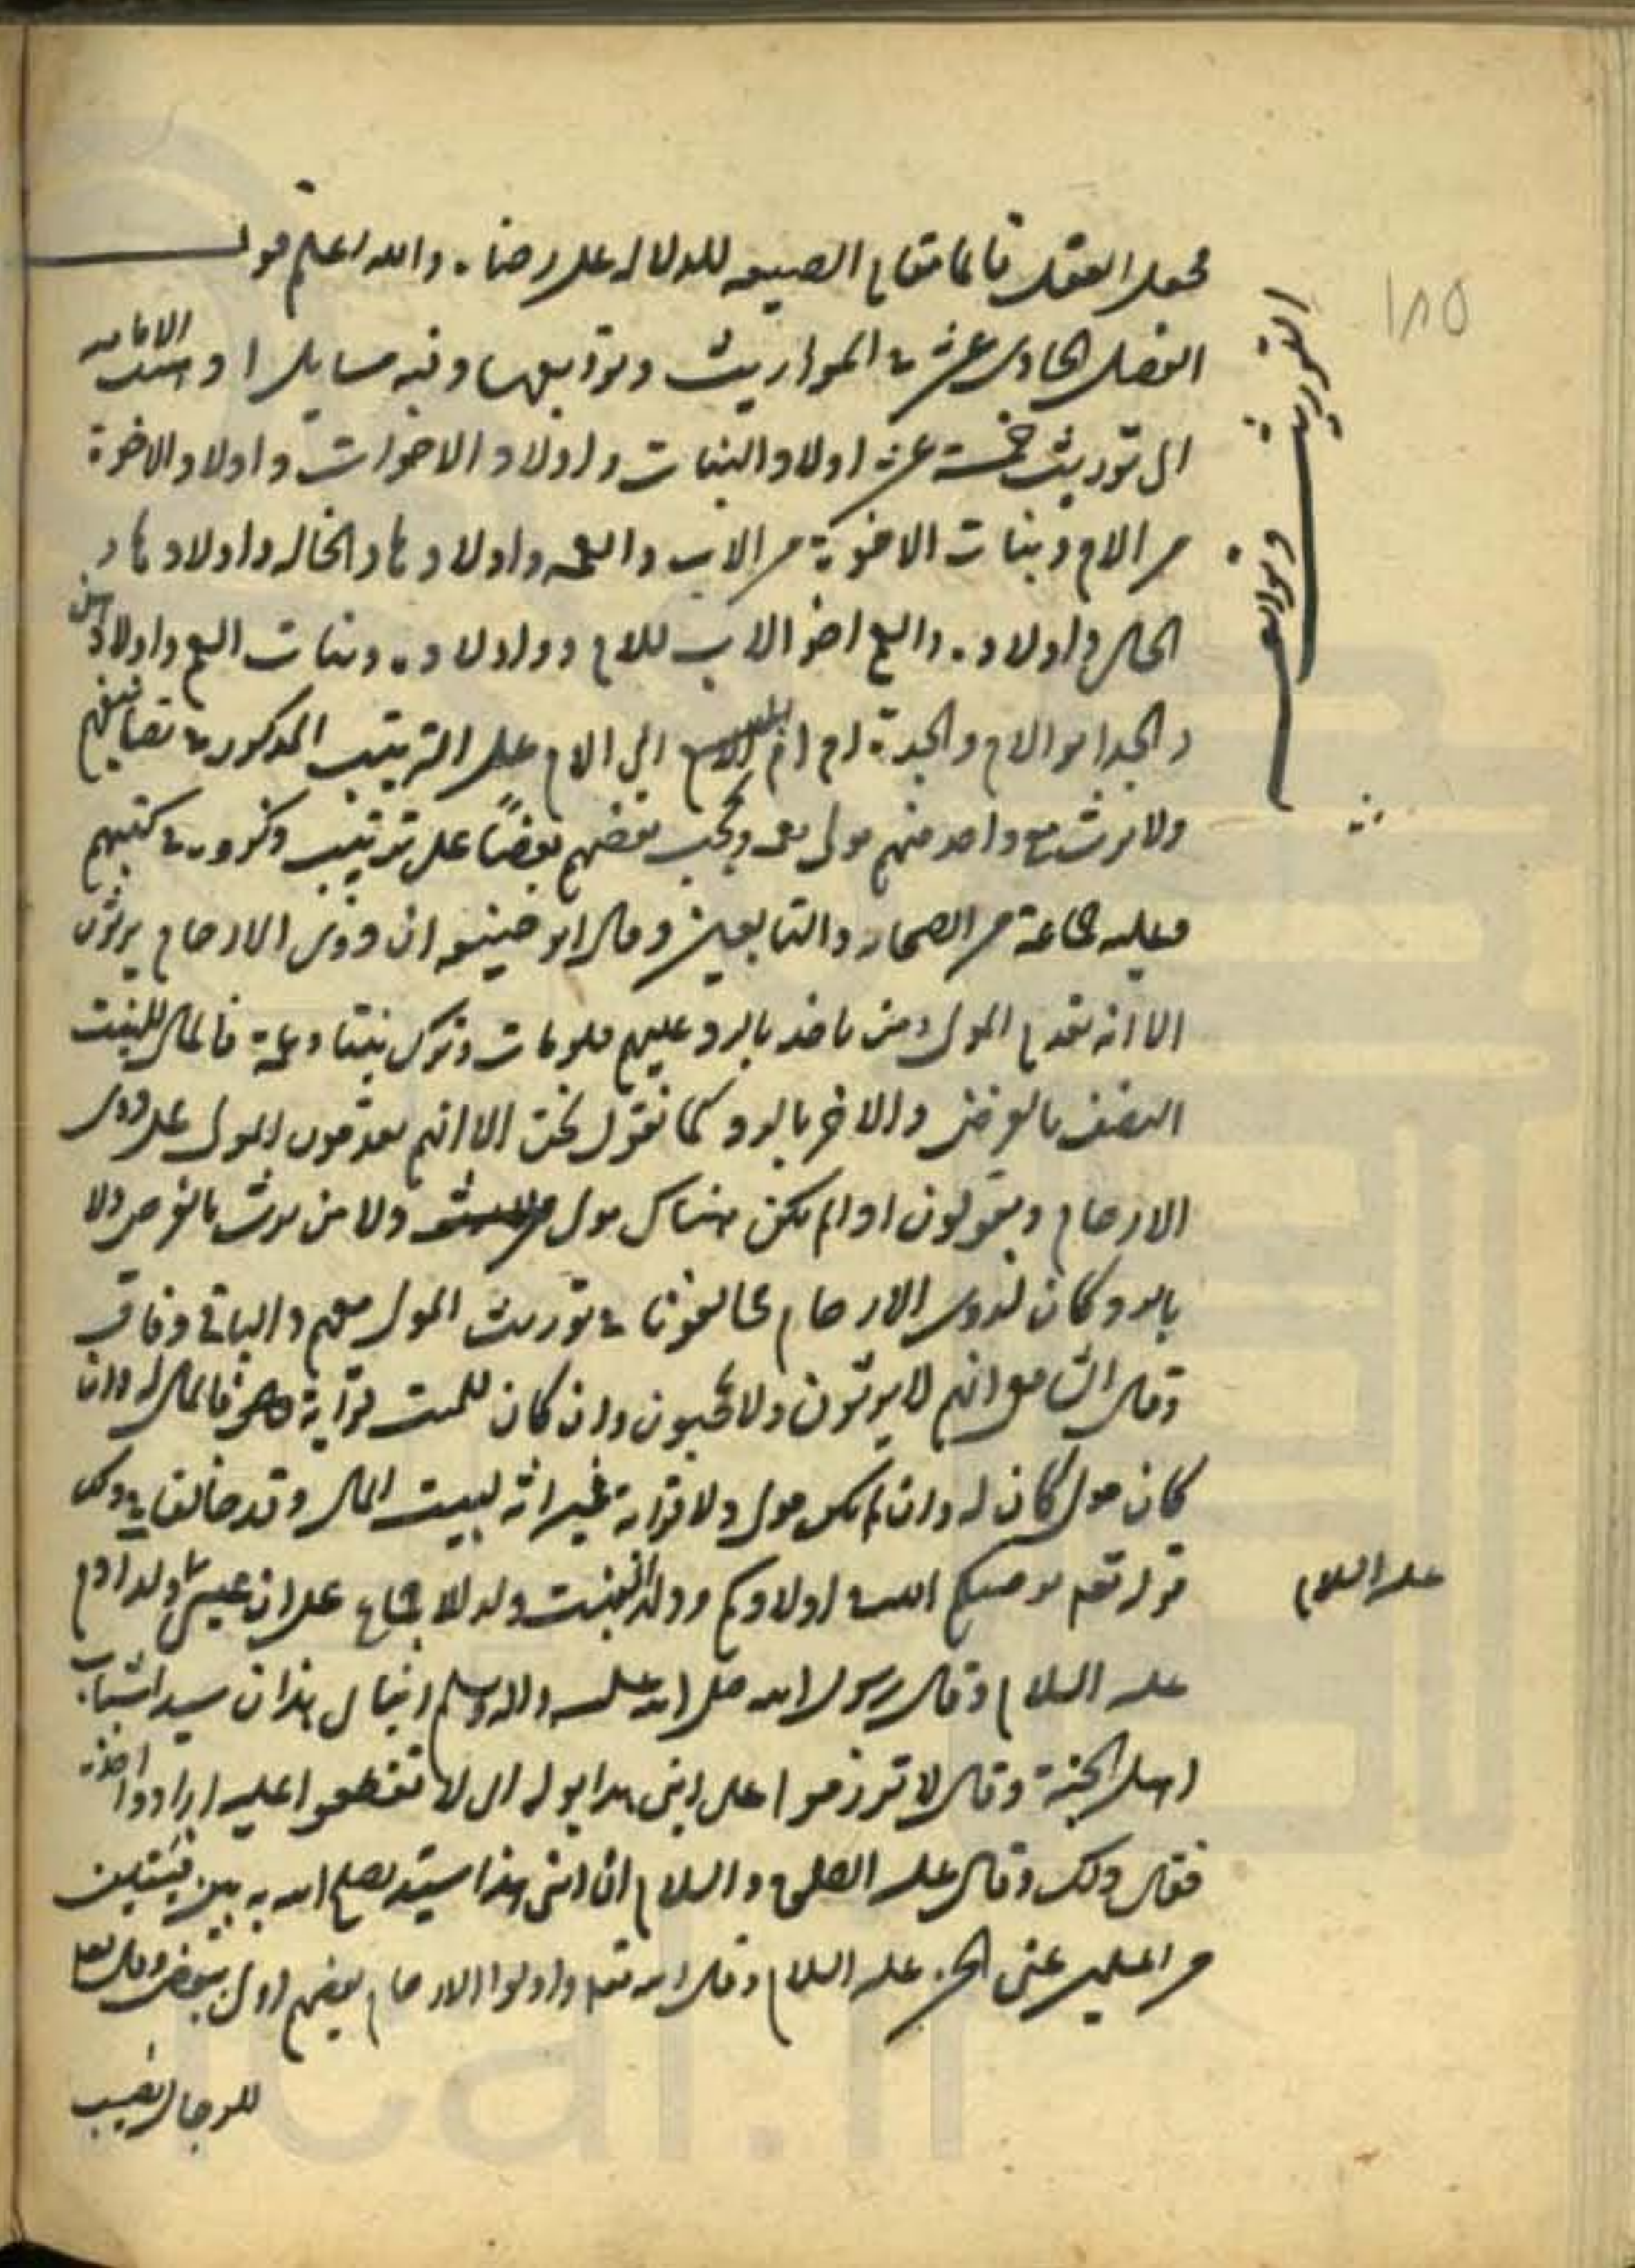 فجعل العقد قائما مقام الصيغه للدلاله على رضاه والله اعلم قوله
الفصل الحادى عشر فى المواريث وتوابعها وفيه مسايل ا ذهبت الاماميه
الى توريث خمسة عشر اولاد البنات واولاد الاخوات واولاد الاخوة
من الام وبنات الاخوة من الاب والعمه واولادها والخاله واولادها و
الخال واولاده والعم اخو الاب للام واولاده وبنات العم واولادهن
والجد ابو الام والجدة ام ابى الام على الترتيب المذكور فى تصانيفهم
ولا يرث مع واحد منهم مولى نعمه ويحجب بعضهم بعضاً على ترتيب ذكروه فى كتبهم
وعليه جماعة من الصحابه والتابعين وقال ابو حنيفه ان ذوى الارحام يرثون
الا انه يقدم المولى ومن ياخذ بالرد عليهم فلو مات وترك بنتا وعمة فالمال للبنت
النصف بالفرض والاخر بالرد كما نقول نحن الا انهم يقدمون المولى على ذوى
الارحام ويقولون اذا لم يكن هناك مولى ولا من يرث بالفرض ولا
بالرد كان لذوى الارحام فخالفونا فى توريث المولى معهم والباقى وفاق
وقال الشافعى انهم لا يرثون ولا يحجبون وان كان للميت قرابة فالمال له وان
كان مولى كان له وان لم يكن مولى ولا قرابة فميراثه لبيت المال وقد خالف فى ذلك
قوله تعم يوصيكم الله فى اولادكم وولد البنت ولد للاجماع على ان عيسى ولد ادم
عليه السلام
عليه السلام وقال رسول الله صلى الله عليه واله وسلم ابناى هذان سيدا شباب
اهل الجنة وقال لا تزرموا على ابنى هذا بوله اى لا تقطعوا عليه ارادوا اخذه
فقال ذلك وقال عليه الصلوة والسلام ان ابنى هذا سيد يصلح الله به بين فئتين
من المسلمين عنى الحسن عليه السلام وقال الله تعم واولوا الارحام بعضهم اولى ببعض وقال تعا
للرجال نصيب
١٨٥